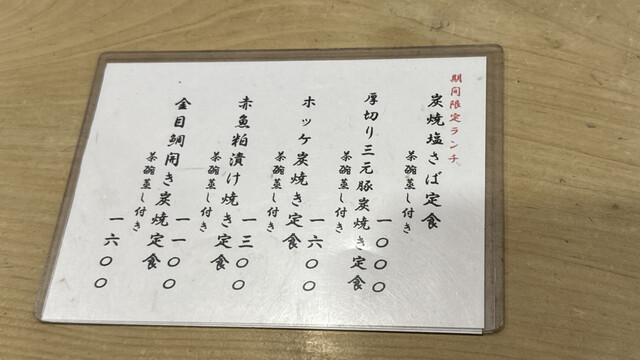 期間限定ランチ
炭焼塩さば定食
茶碗蒸し付き
一〇〇〇
厚切り三元豚炭焼き定食
茶碗蒸し付き
一六〇〇
ホッケ炭焼き定食
茶碗蒸し付き
一三〇〇
赤魚粕漬け焼き定食
茶碗蒸し付き
一一〇〇
金目鯛開き炭焼定食
茶碗蒸し付き
一六〇〇